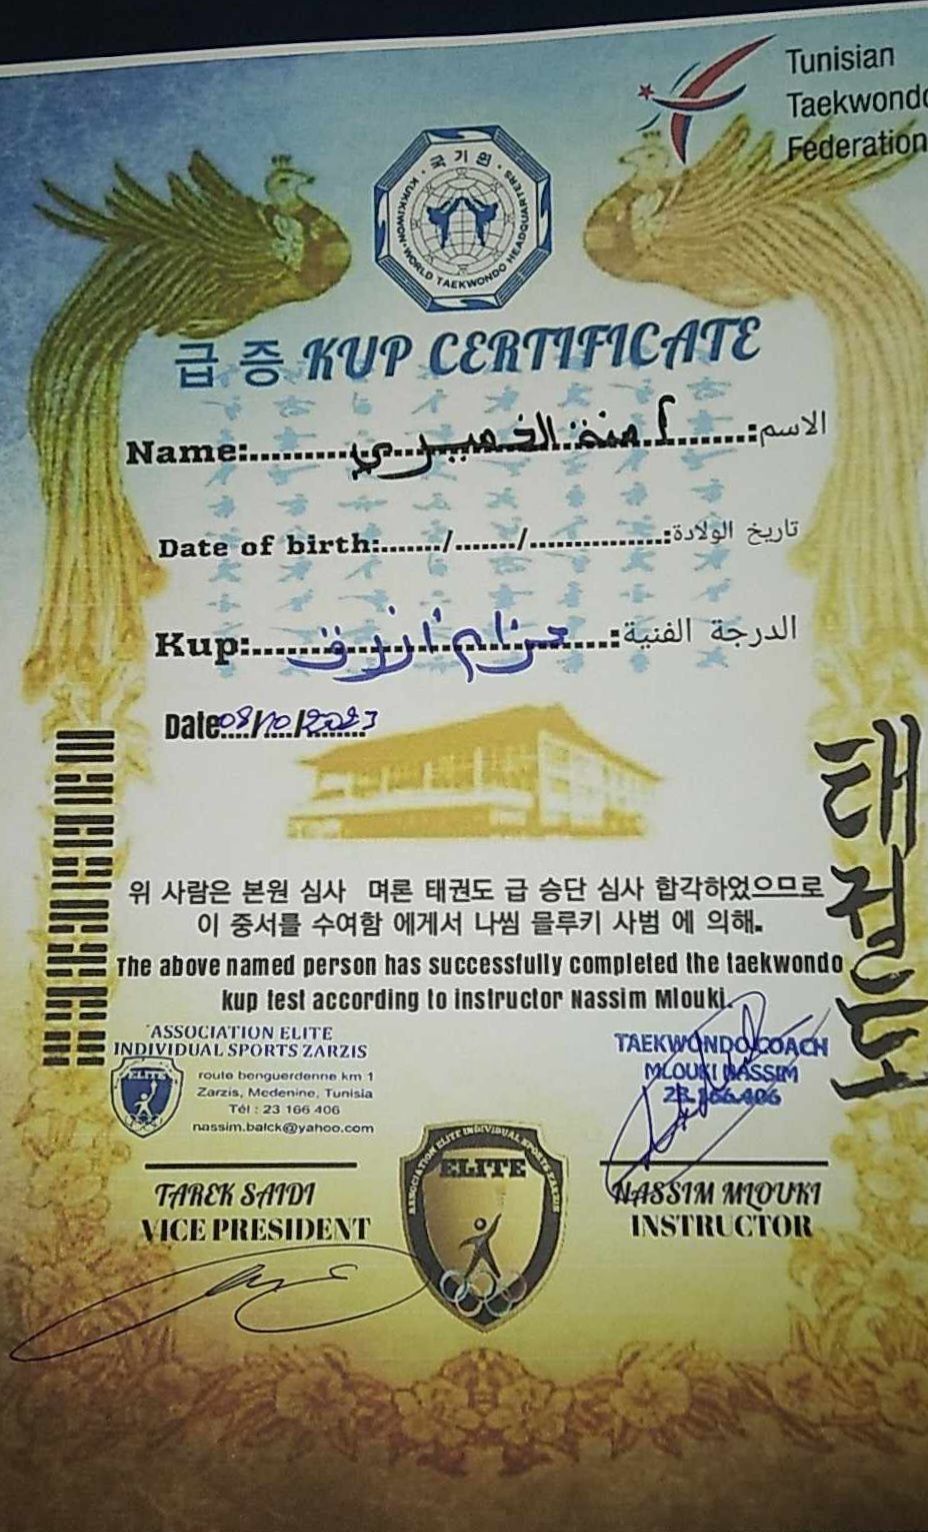 Tunisian
Taekwondo
Federation
국기원
KUKKIWON·WORLD TAEKWONDO HEADQUARTERS
급 증 KUP CERTIFICATE
Name:.........آمنة.........:الاسم
Date of birth:......./......./...............:تاريخ الولادة
Kup:......حزام أزرق......:الدرجة الفنية
Date 08/10/2023
태권도
위 사람은 본원 심사 며론 태권도 급 승단 심사 합각하었으므로
이 중서를 수여함 에게서 나씸 믈루키 사범 에 의해.
The above named person has successfully completed the taekwondo
kup test according to instructor Nassim Mlouki.
ASSOCIATION ELITE
INDIVIDUAL SPORTS ZARZIS
ELITE
route benguerdenne km 1
Zarzis, Medenine, Tunisia
Tél : 23 166 406
nassim.balck@yahoo.com
TAEKWONDO COACH
MLOUKI NASSIM
23.166.406
TAREK SAIDI
VICE PRESIDENT
ASSOCIATION ELITE INDIVIDUAL SPORTS ZARZIS
ELITE
NASSIM MLOUKI
INSTRUCTOR